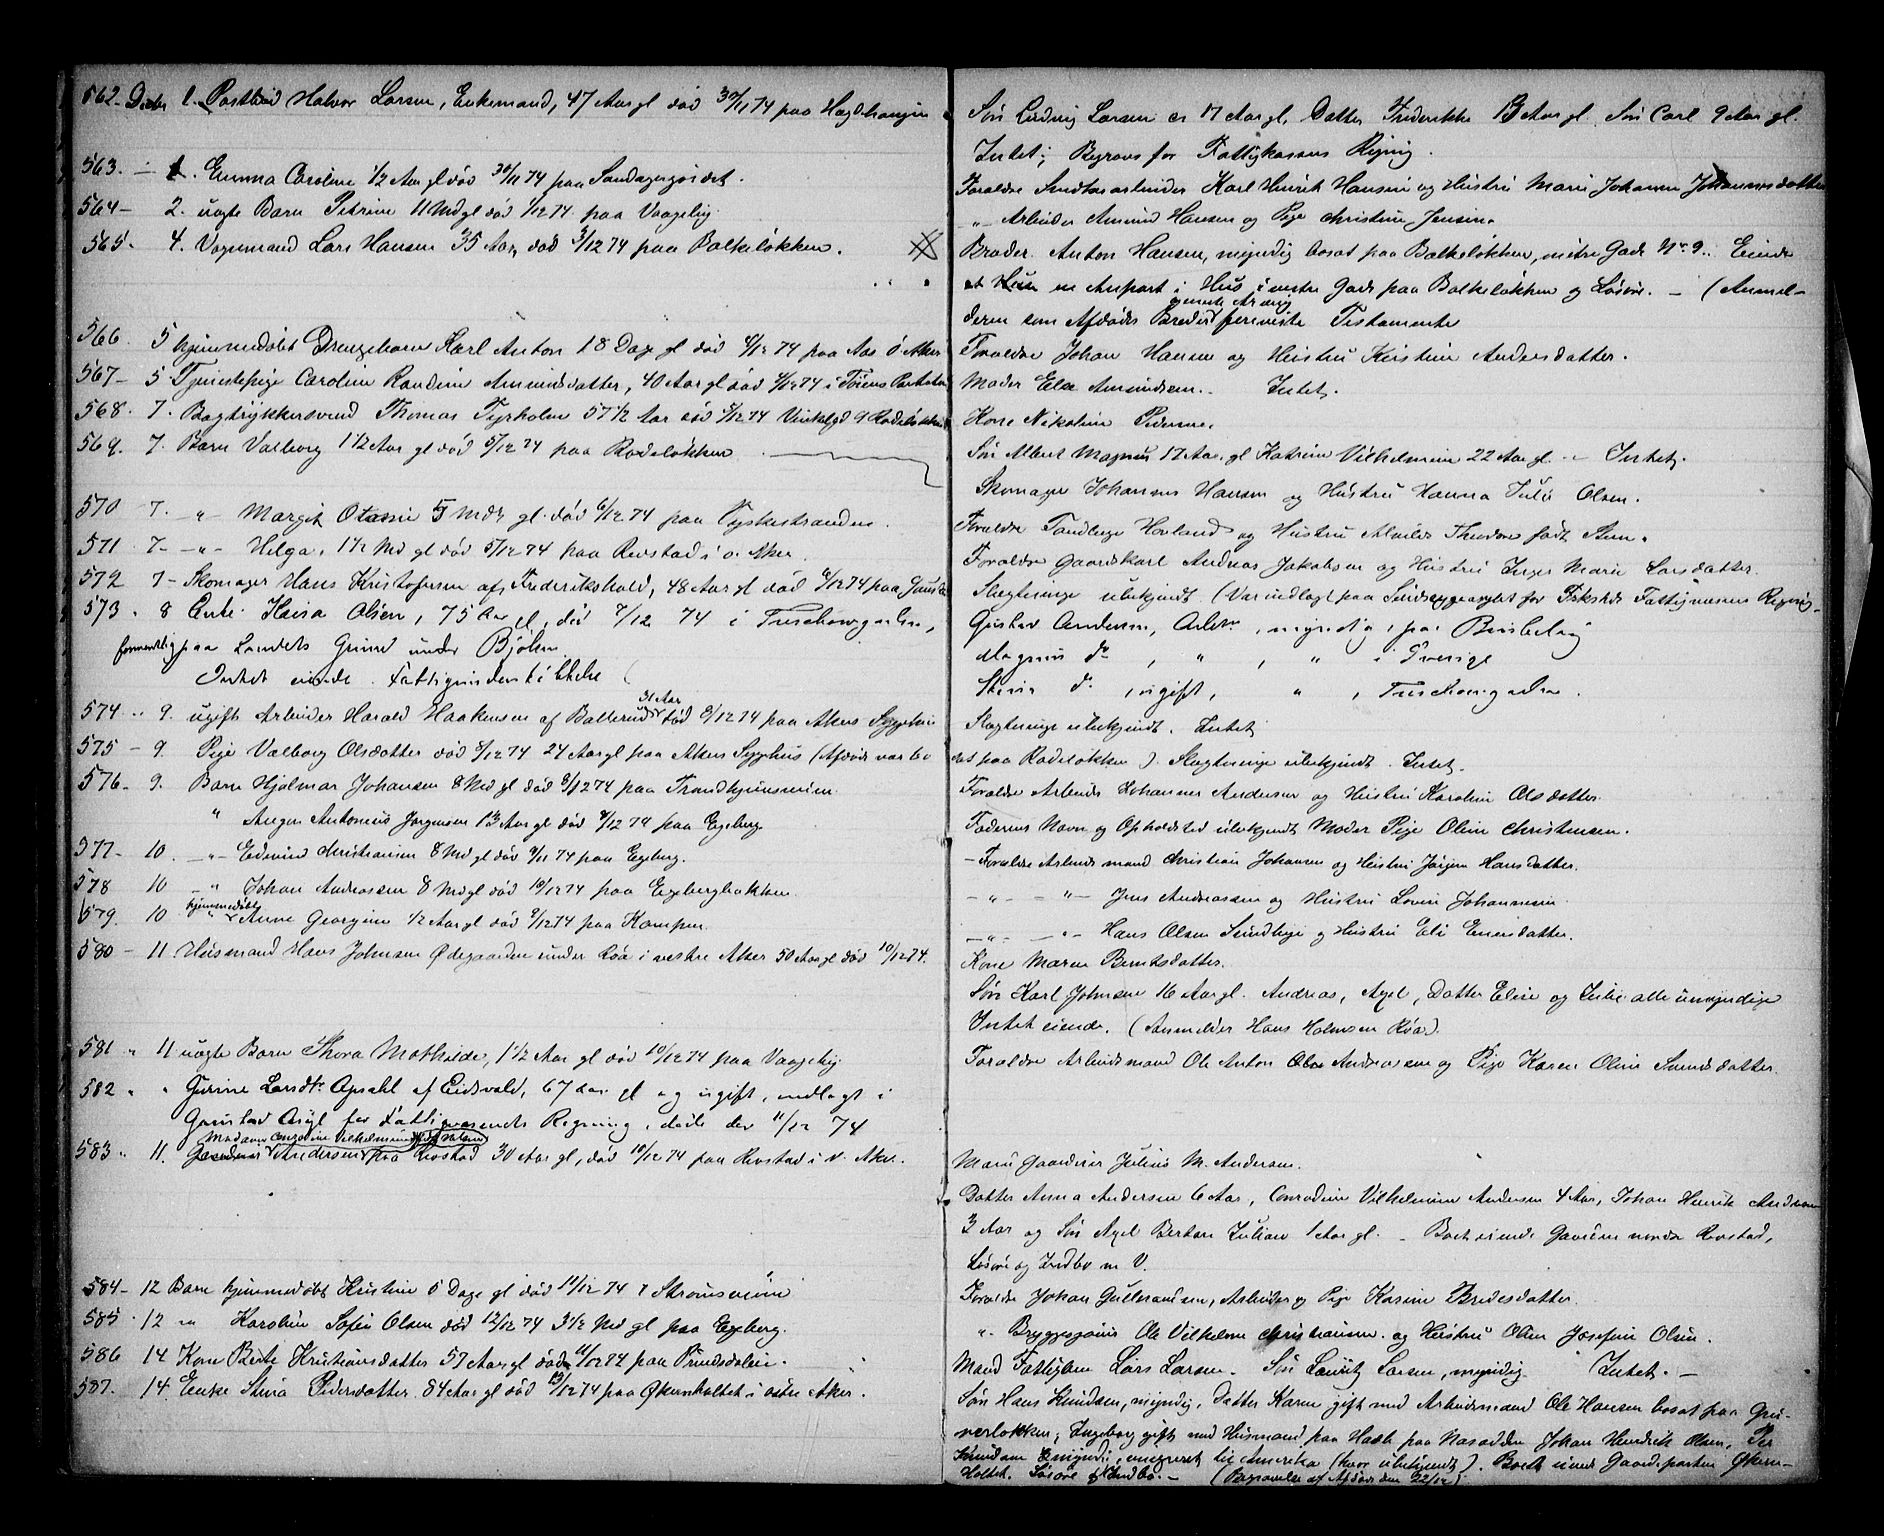 562. Decbr 1. Postbud Halvor Larsen, Enkemand, 47 Aar gl død 30/11 74 paa Hægdehaugen
563. — 1. Emma Caroline 1/2 Aar gl død 30/11 74 paa Sandagergjerdet.
564 — 2. uægte Barn Petrine 11 Md gl død 1/12 74 paa Vaagebig
565. 4. Vognmand Lars Hansen 35 Aar, død 3/12 74 paa Balkeløkken.
566. 5 hjemmedøbt Drengebarn Karl Anton 18 Dage gl død 4/12 74 paa Aas Ø Aker
567 — 5 Tjenestepige Caroline Randine Amundsdatter, 40 Aar gl død 4/12 74 i
568. 7. Bogtrykkersvend Thomas Tyrholm 57 1/2 Aar død 5/12 74 Vinkelgd 9 Rodeløkken
569. 7. Barn Valborg 1 1/2 Aar gl død 5/12 74 paa Rodeløkken
570 7. " Margit Otassie 5 Mdr gl. død 6/12 74 paa Fyskestranden.
571 7. — " — Helga, 1 1/2 Md gl død 5/12 74 paa Revstad i ø. Aker.
572 7 — Skomager Hans Kristofersen af Frederikshald, 48 Aar gl død 6/12 74 paa Gaustad
573. 8 Enke Kaisa Olsen, 75 Aar gl, død 7/12 74 i Truschowgaden,
formentlig paa Landets Grund under Bjølsen
Intet eiende. Fattigunderstøttelse
31 Aar
574 " 9. ugift Arbeider Harald Haakensen af Ballerud død 8/12 74 paa Akers Sygehus
575 — 9. Pige Valborg Olsdatter død 8/12 74 24 Aar gl paa Akers Sygehus (Afdøde var bo
576. 9. Barn Hjalmar Johansen 8 Md gl død 8/12 74 paa Trondhjemsveien.
" August Antonius Jørgensen 13 Aar gl død 9/12 74 paa Egeberg.
577 — 10. — " — Edvind Christiansen 8 Md gl død 9/11 74 paa Egeberg.
578 10 — " Johan Andreassen 8 Md gl død 10/12 74 paa Egebergbakken.
hjemmedøbt
579. 10 " Anne Georgine 1/2 Aar gl død 9/12 74 paa Kampen.
580 — 11 Husmand Hans Johnsen Ødegaarden under Røa i vestre Aker 50 Aar gl død 10/12 74.
581 " 11 uægte Barn Thora Mathilde, 1 1/2 Aar gl død 10/12 74 paa Vaagebig
582 " " Gurine Larsdtr Opsahl af Eidsvold, 67 Aar gl og ugift, indlagt i
Gaustad Asyl for Fattigvæsenets Regning, døde den 11/12 74
Madame Conradine Vilhelmine
583 " 11. Andersen paa Revstad 30 Aar gl, død 10/12 74 paa Revstad i v. Aker.
584 — 12 Barn hjemmedøbt Kristine 5 Dage gl død 11/12 74 i Strømsveien
585 . 12 — " Karoline Sofie Olsen død 12/12 74 3 1/2 Md gl paa Egeberg.
586 14 Kone Berte Kristiansdatter 57 Aar gl død 11/12 74 paa Prindsdalen.
587. 14. Enke Stina Pedersdatter 84 Aar gl død 13/12 74 paa Økernholtet i østre Aker.
Søn Ludvig Larsen er 17 Aar gl, Datter Frederikke 13 Aar gl, Søn Carl 9 Aar gl.
Intet; Begraves for Fattigkassens Regning.
Forældre Arbeider Karl Henrik Hansen og Hustru Marie Johanne Johannesdatter
" — Arbeider Amund Hansen og Pige Christine Jensine
Broder Anton Hansen, myndig bosat paa Balkeløkken, vestre Gade No 9. Eiende
et Hus en Anpart i Hus i vestre Gade paa Balkeløkken og Løsøre. — (Anmel-
deren som Afdødes Broder foreviste Testamente
Forældre Johan Hansen og Hustru Kirstine Andersdatter.
Moder Else Amundsen. Intet.
Kone Nikoline Pedersen.
Søn Albert Magnus 17 Aar gl Katrine Vilhelmine 22 Aar gl. — Intet.
Skomager Johannes Hansen og Hustru Hanna Julie Olsen.
Forældre Tandlæge Hovland og Hustru Alvilde Theodora født Steen.
Forældre Gaardskarl Andreas Jakobsen og Hustru Inger Marie Larsdatter.
Slægtninge ubekjendt (Var indlagt paa Sindssygeasylet for Frkshlds Fattigvæsens Regning
Gustav Andersen, Arbm, myndig, paa
Magnus do, ", " i Sverige
Stina do, ugift, ", Truschowgaden.
Slægtninge ubekjendt. Intet
sat paa Rodeløkken). Slægtninge ubekjendt. Intet.
Forældre Arbeids Johannes Andersen og Hustru Karoline Olsdatter.
Faderens Navn og Opholdsted ubekjendt Moder Pige Oline Christensen.
— Forældre Arbeidsmand Christian Johansen og Hustru Jørgine Hansdatter.
— " — — " — Jens Andreassen og Hustru Lovise Johannesen
— " — — " — Hans Olsen Sundhage og Hustru Eli Enersdatter.
Kone Maren Berntsdatter.
Søn Karl Johnsen 16 Aar gl. Andreas, Axel, Datter Elise og Julie alle umyndige
Intet eiende. (Anmelder Hans Halmsen Røa).
Forældre Arbeidsmand Ole Anton Olsen Andreasen og Pige Karen Oline Svendsdatter.
Mand Gaardeier Julius M. Andersen.
Datter Anna Andersen 6 Aar, Conradine Vilhelmine Andersen 4 Aar, Johan Henrik Andersen
3 Aar og Søn Axel Bertan Julian 1 Aar gl. — Boet eiende Gaarden nordre Revstad,
Løsøre og Indbo m. V.
Forældre Johan Gulbrandsen, Arbeider og Pige Karine Bredesdatter.
" Bryggesjouer Ole Vilhelm Christiansen og Hustru Oline Josefine Olsen.
Mand Fattiglem Lars Larsen. Søn Lauritz Larsen, myndig. Intet. —
Søn Hans Knudsen, myndig, Datter Karen gift med Arbeidsmand Ole Hansen bosat paa Grü-
nerløkken; Ingeborg gift med Husmand paa Hasle paa Nasodden Johan Hendrik Olsen, Per
Knudsen myndig, emigreret til Amerika (hvor ubekjendt). Boet eiende Gaardsparten Økern-
Holtet. Løsøre & Indbo. — (Begravelse af Afdøde den 22/12)